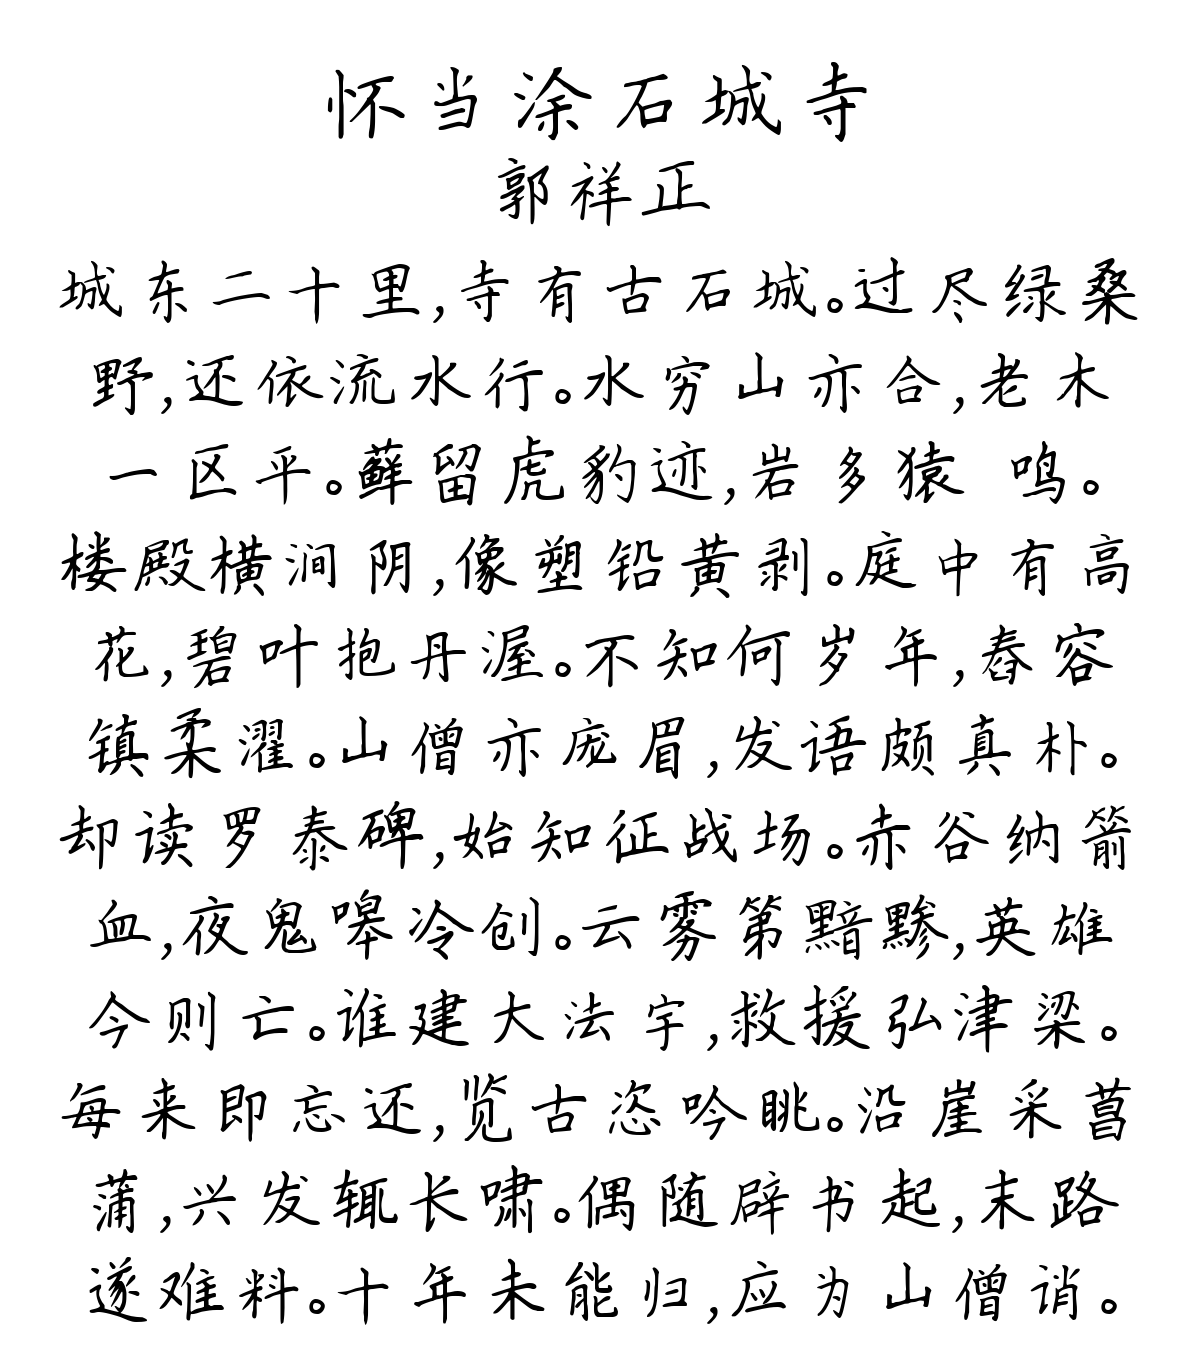 怀当涂石城寺
郭祥正
城东二十里,寺有古石城。过尽绿桑
野,还依流水行。水穷山亦合,老木
一区平。藓留虎豹迹,岩多猿 鸣。
楼殿横涧阴,像塑铅黄剥。庭中有高
花,碧叶抱丹渥。不知何岁年,舂容
镇柔濯。山僧亦庞眉,发语颇真朴。
却读罗泰碑,始知征战场。赤谷纳箭
血,夜鬼嗥冷创。云雾第黯黪,英雄
今则亡。谁建大法宇,救援弘津梁。
每来即忘还,览古恣吟眺。沿崖采菖
蒲,兴发辄长啸。偶随辟书起,末路
遂难料。十年未能归,应为山僧诮。